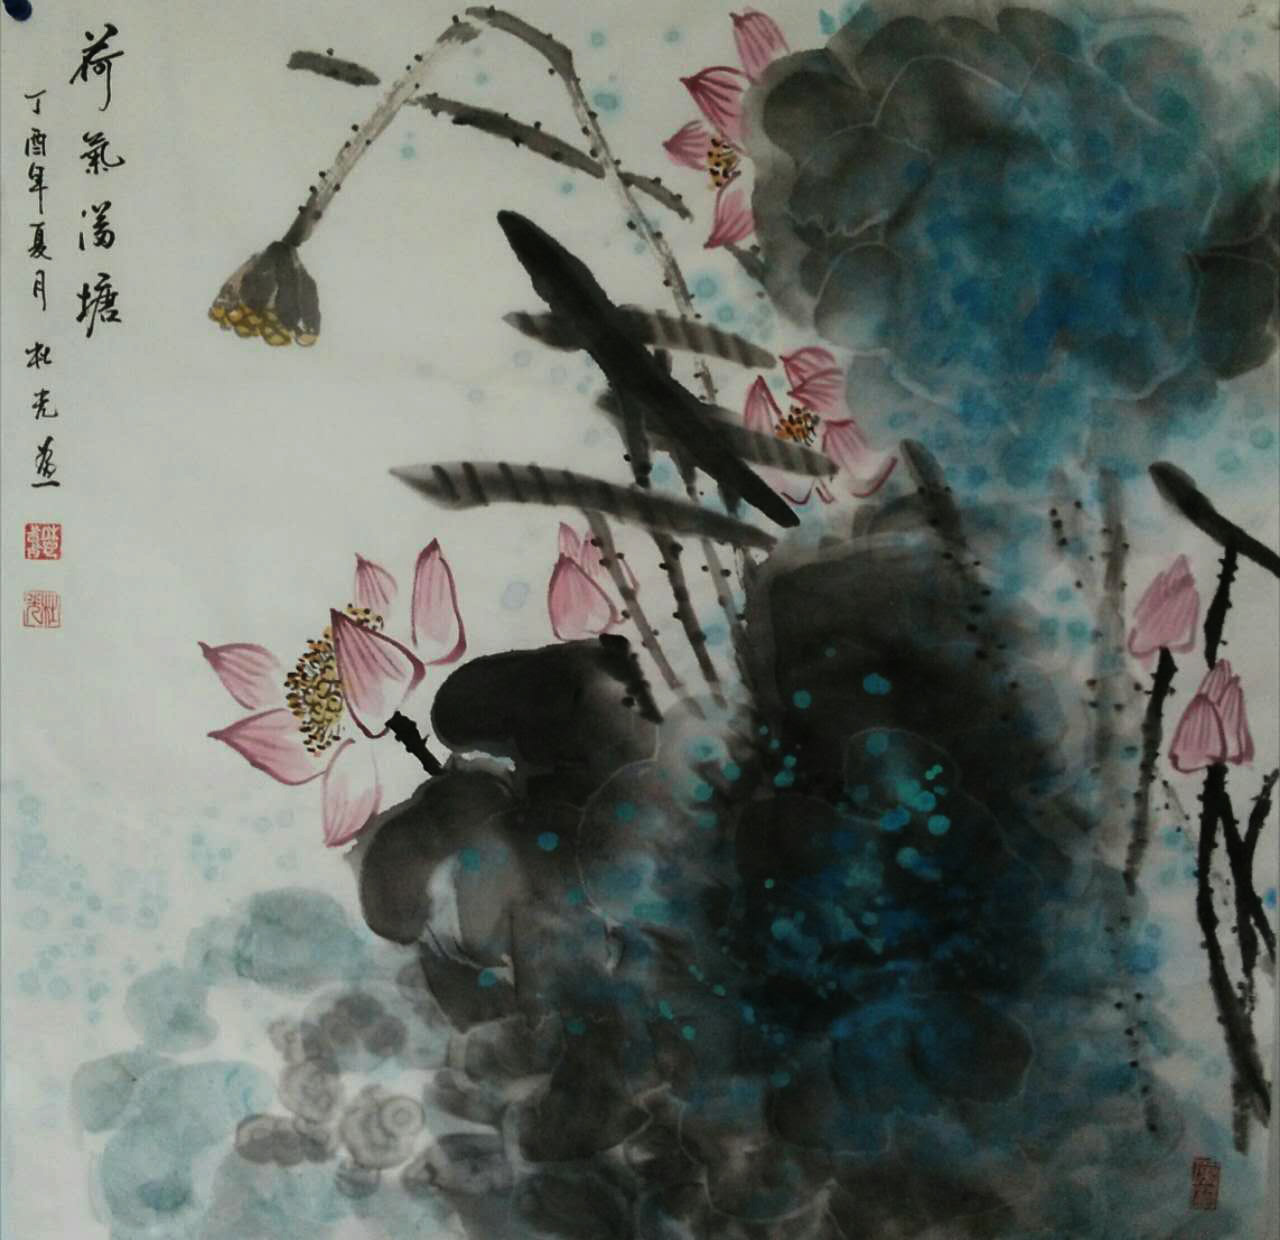 荷氣滿塘
丁酉年夏月 杜光画